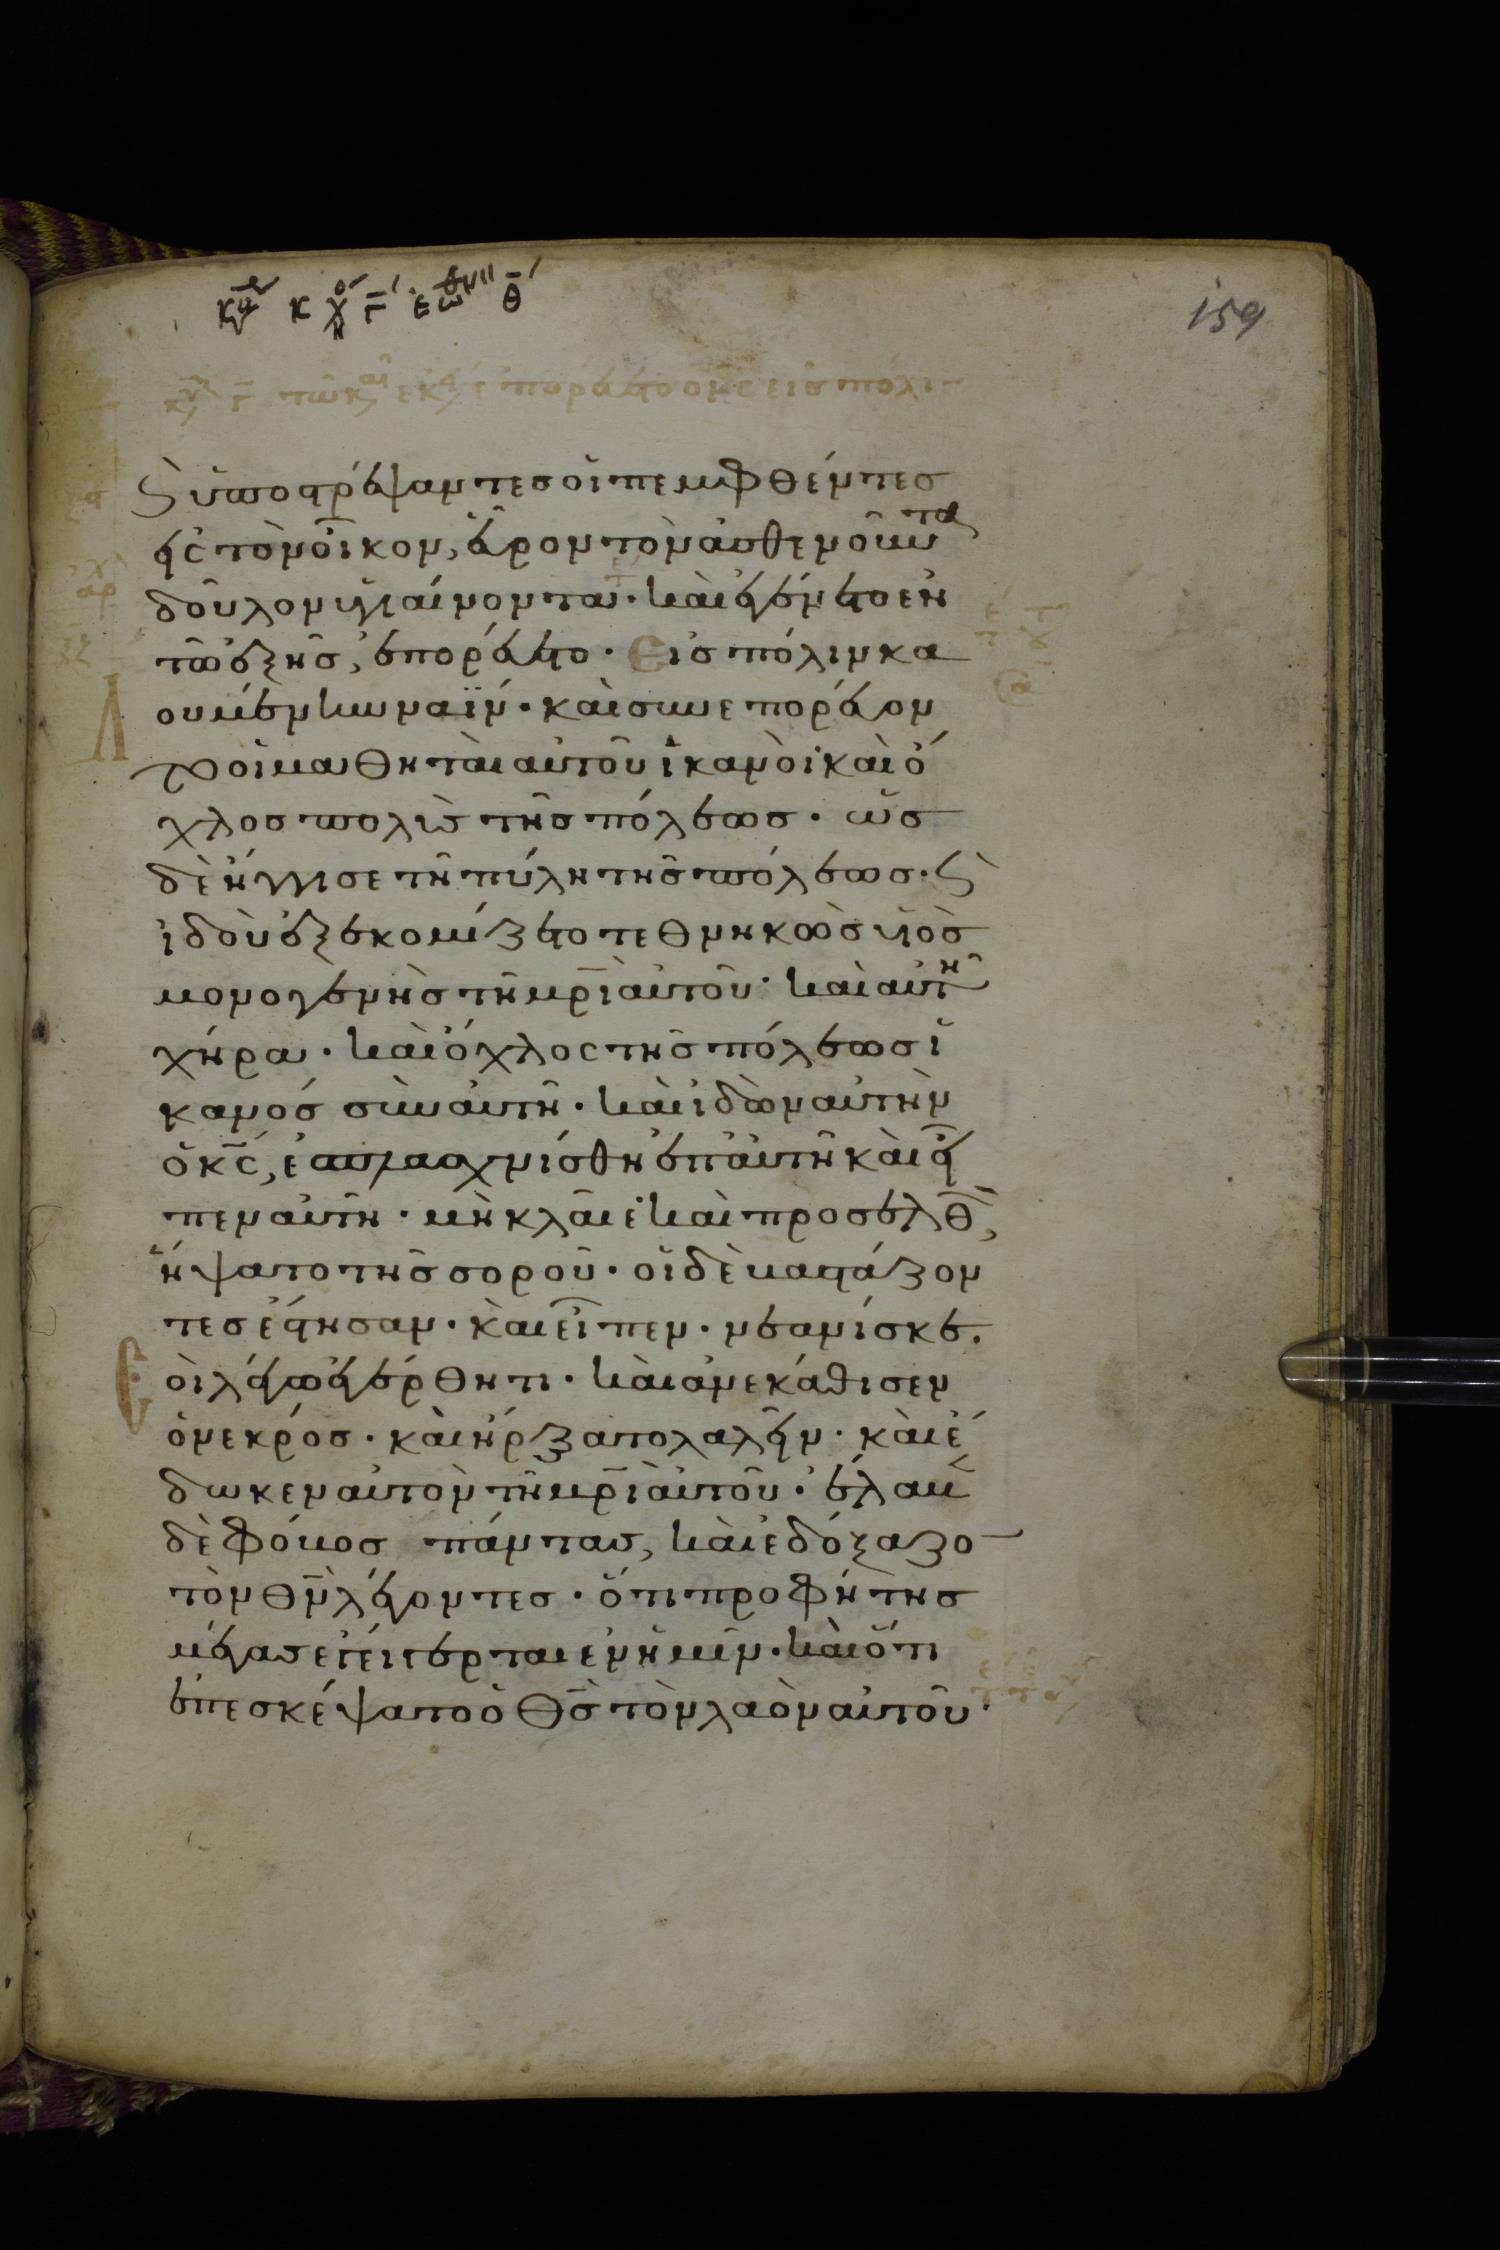 159
κυ γ τῶ κ ἐκ ἐπορεύετο ὁ ις εἰσ πόλι
ϛ ὑποστρέψαντεσ οἱ πεμφθέντεσ
εἰς τὸν οἶκον, εὗρον τὸν ἀσθενοῦντα
δοῦλον ὑγιαίνοντα· καὶ ἐγένετο ἐν
τῶ ἑξῆσ, ἐπορεύετο· εἰσ πόλιν κα
λουμένην ναϊν· καὶ συνεπορεύον
το οἱ μαθηταὶ αὐτοῦ ἱκανοὶ· καὶ ὄ
χλοσ πολὺσ τῆσ πόλεωσ· ὡσ
δὲ ἤγγισε τῆ πύλη τῆσ πόλεωσ· ϛ
ἰδοὺ ἐξεκομίζετο τεθνηκὼσ υἱὸσ
μονογενὴσ τῆ μρὶ αὐτοῦ· καὶ αὐτῆ
χήρα· καὶ ὄχλος τῆσ πόλεωσ ἱ
κανόσ σὺν αὐτῆ· καὶ ἰδὼν αὐτὴν
ὁ κς, ἐσπλαχνίσθη ἐπ αὐτῆ καὶ εἶ
πεν αὐτῆ· μὴ κλαῖε· καὶ προσελθ,
ἥψατο τῆσ σοροῦ· οἱ δὲ βαστάζον
τεσ ἔστησαν· καὶ εἶπεν· νεανίσκε.
σοὶ λέγω ἐγέρθητι· καὶ ἀνεκάθισεν
ὁ νεκρόσ· καὶ ἤρξατο λαλεῖν· καὶ ἔ
δωκεν αὐτὸν τῆ μρὶ αὐτοῦ· ἔλαβε
δὲ φόβοσ πάντασ, καὶ ἐδόξαζο
τὸν θν λέγοντεσ· ὅτι προφήτησ
μέγασ ἐγήγερται ἐν ἡμῖν· καὶ ὅτι
ἐπεσκέψατο ὁ θς τὸν λαὸν αὐτοῦ·